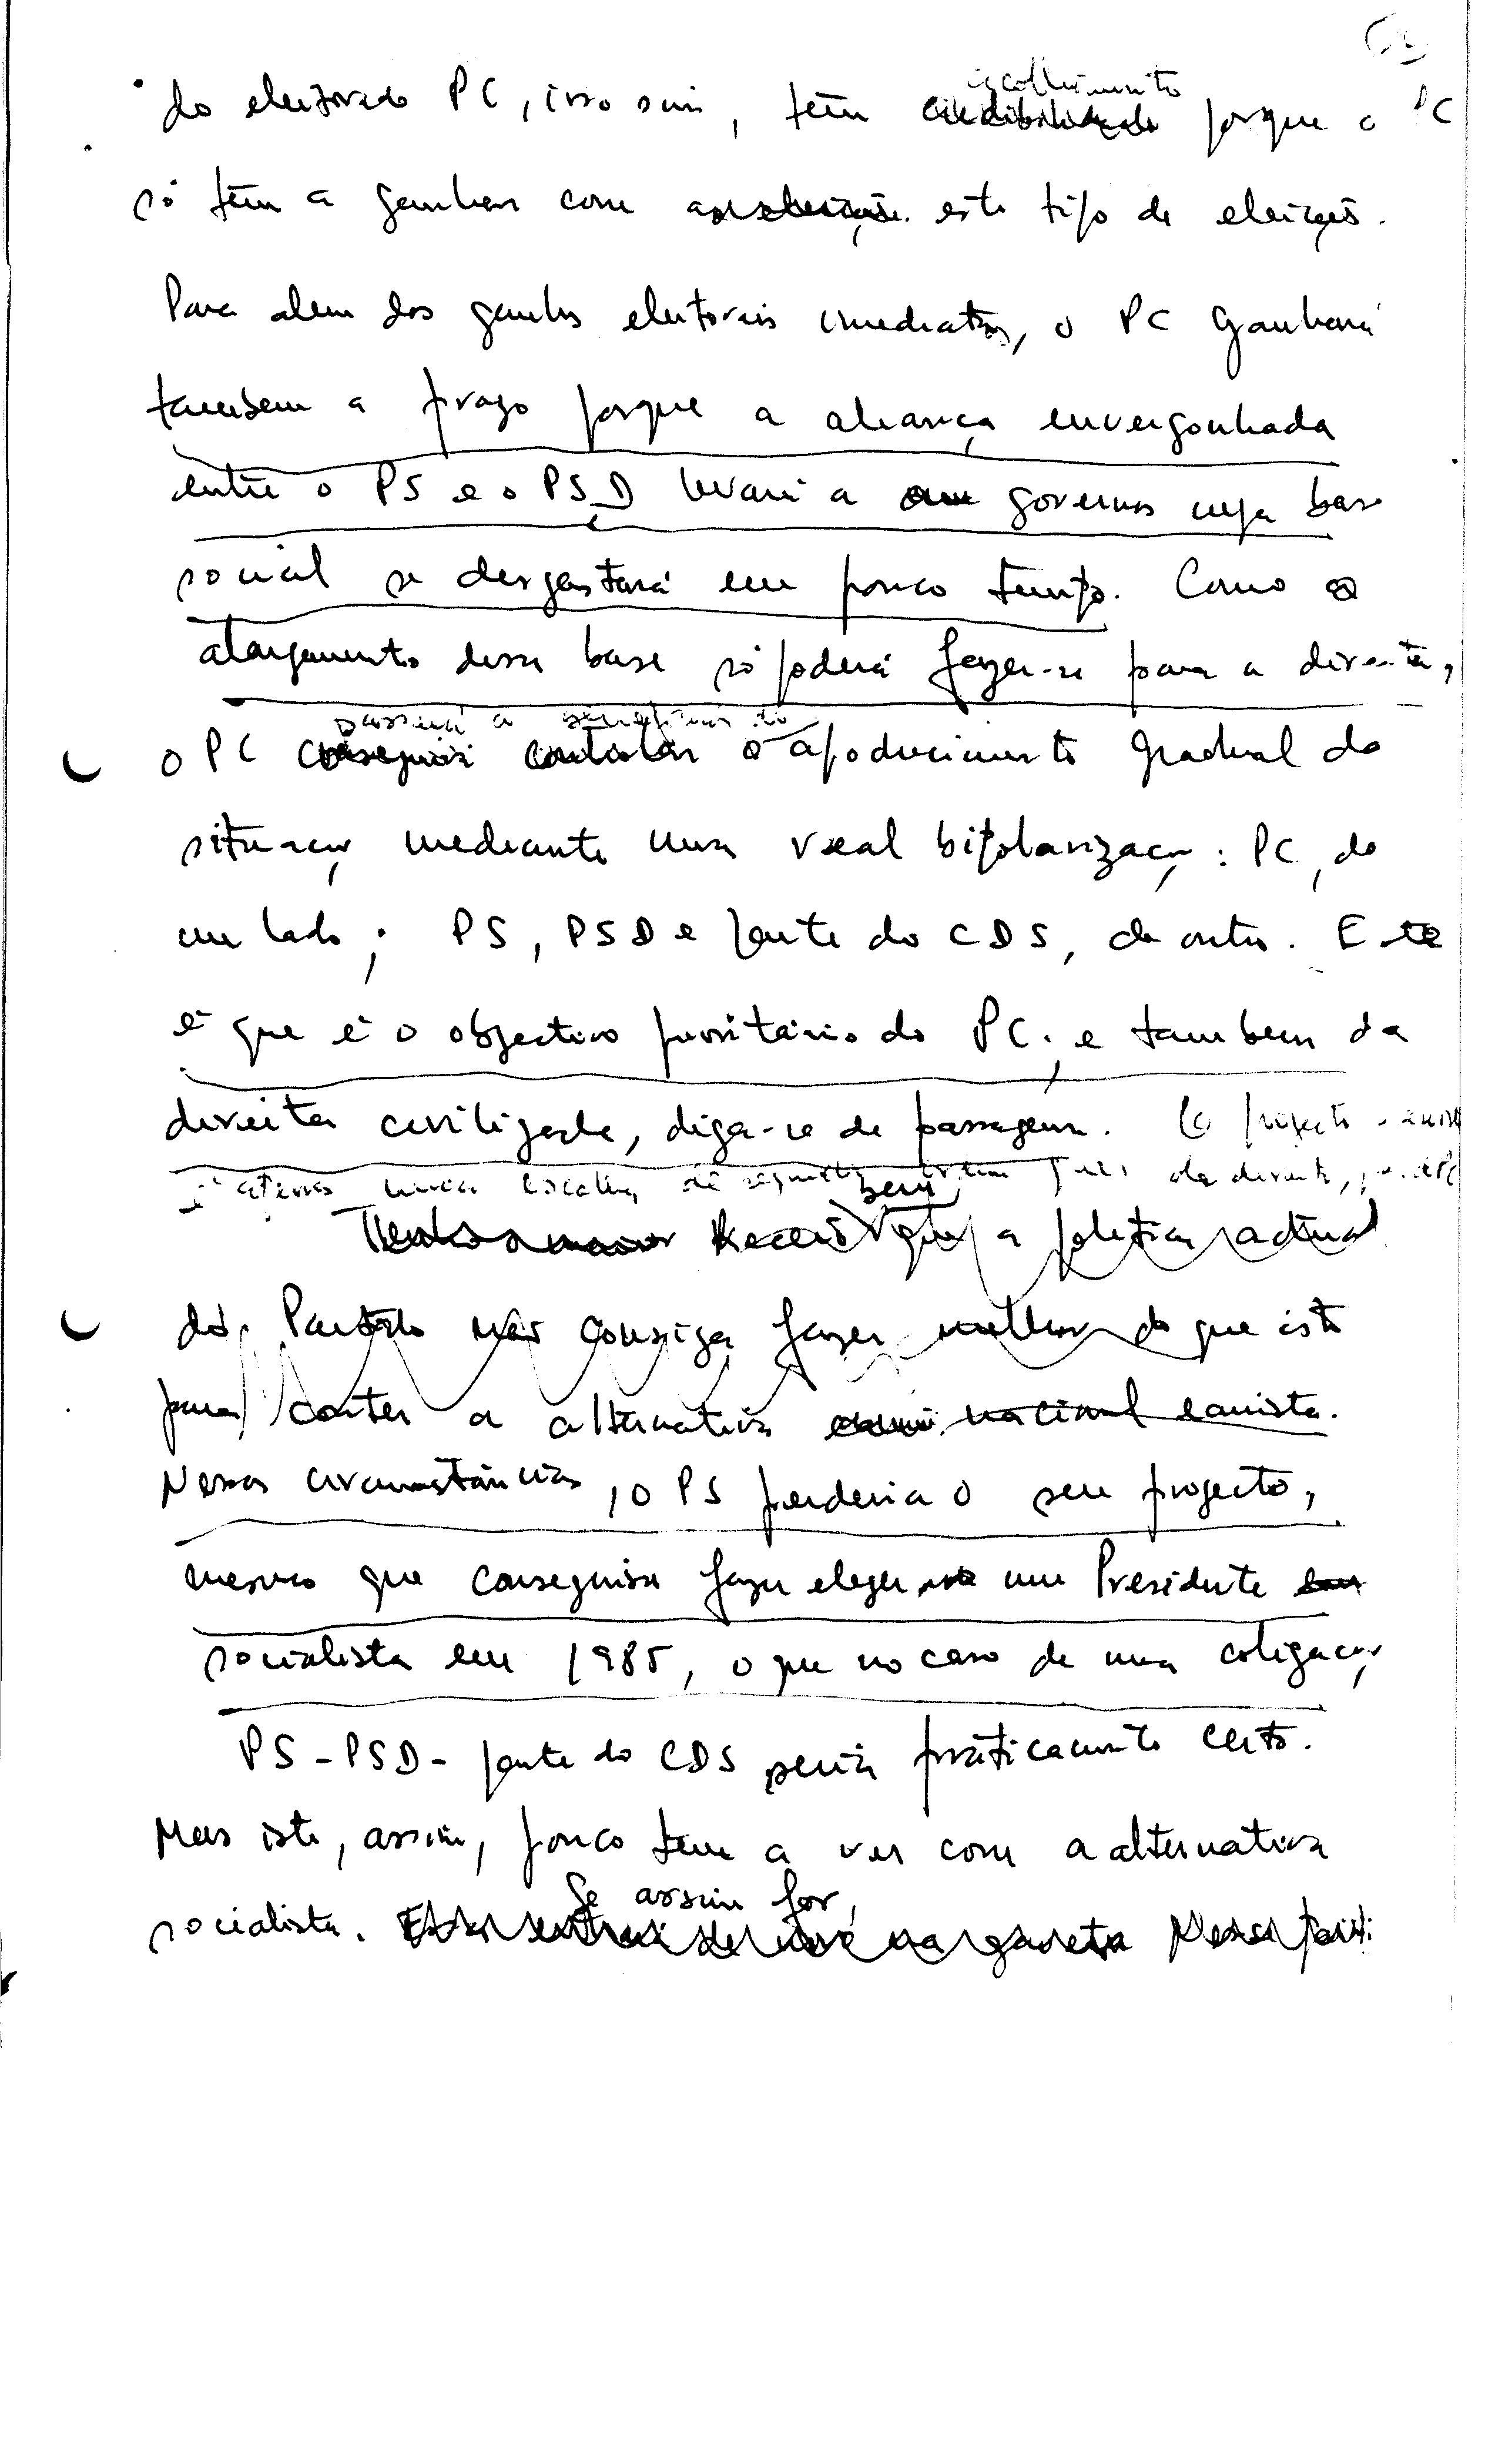 do eleitorado PC, isso sim, têm acolhimento porque o PC
só têm a ganhar com este tipo de eleição.
Para alem dos ganhos eleitorais imediatos, o PC ganhará
tambem a prazo porque a aliança envergonhada
entre o PS e o PSD levará a governos cuja base
social se desgastará em pouco tempo. Como o
alargamento dessa base só poderá fazer-se para a direita,
passará a beneficiar do
o PC conseguirá controlar o apodrecimento gradual da
situação mediante uma real bipolarização: PC, de
um lado; PS, PSD e parte do CDS, de outro. Este
é que é o objectivo prioritário do PC. e tambem da
direita civilizada, diga-se de passagem. (o projecto
é apenas uma da direita,
bem
Tenho o maior Receio que a politica actual
do Partido não consiga fazer melhor do que isto
para conter a alternativa nacional eanista.
Nessas circunstâncias, o PS perderia o seu projecto,
mesmo que conseguisse fazer eleger um Presidente
socialista em 1985, o que no caso de uma coligação
PS-PSD-parte do CDS seria práticamente certo.
Mas isto, assim, pouco tem a ver com a alternativa
Se assim for,
socialista. na gaveta Nessa